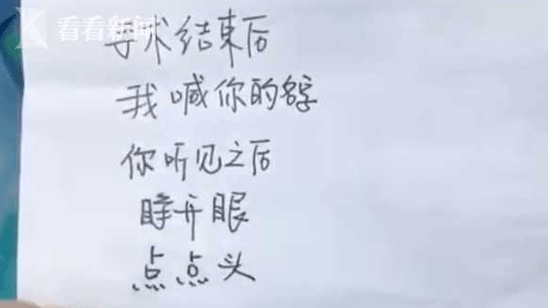 看看新闻
手术结束后
我喊你的名字
你听见之后
睁开眼
点点头